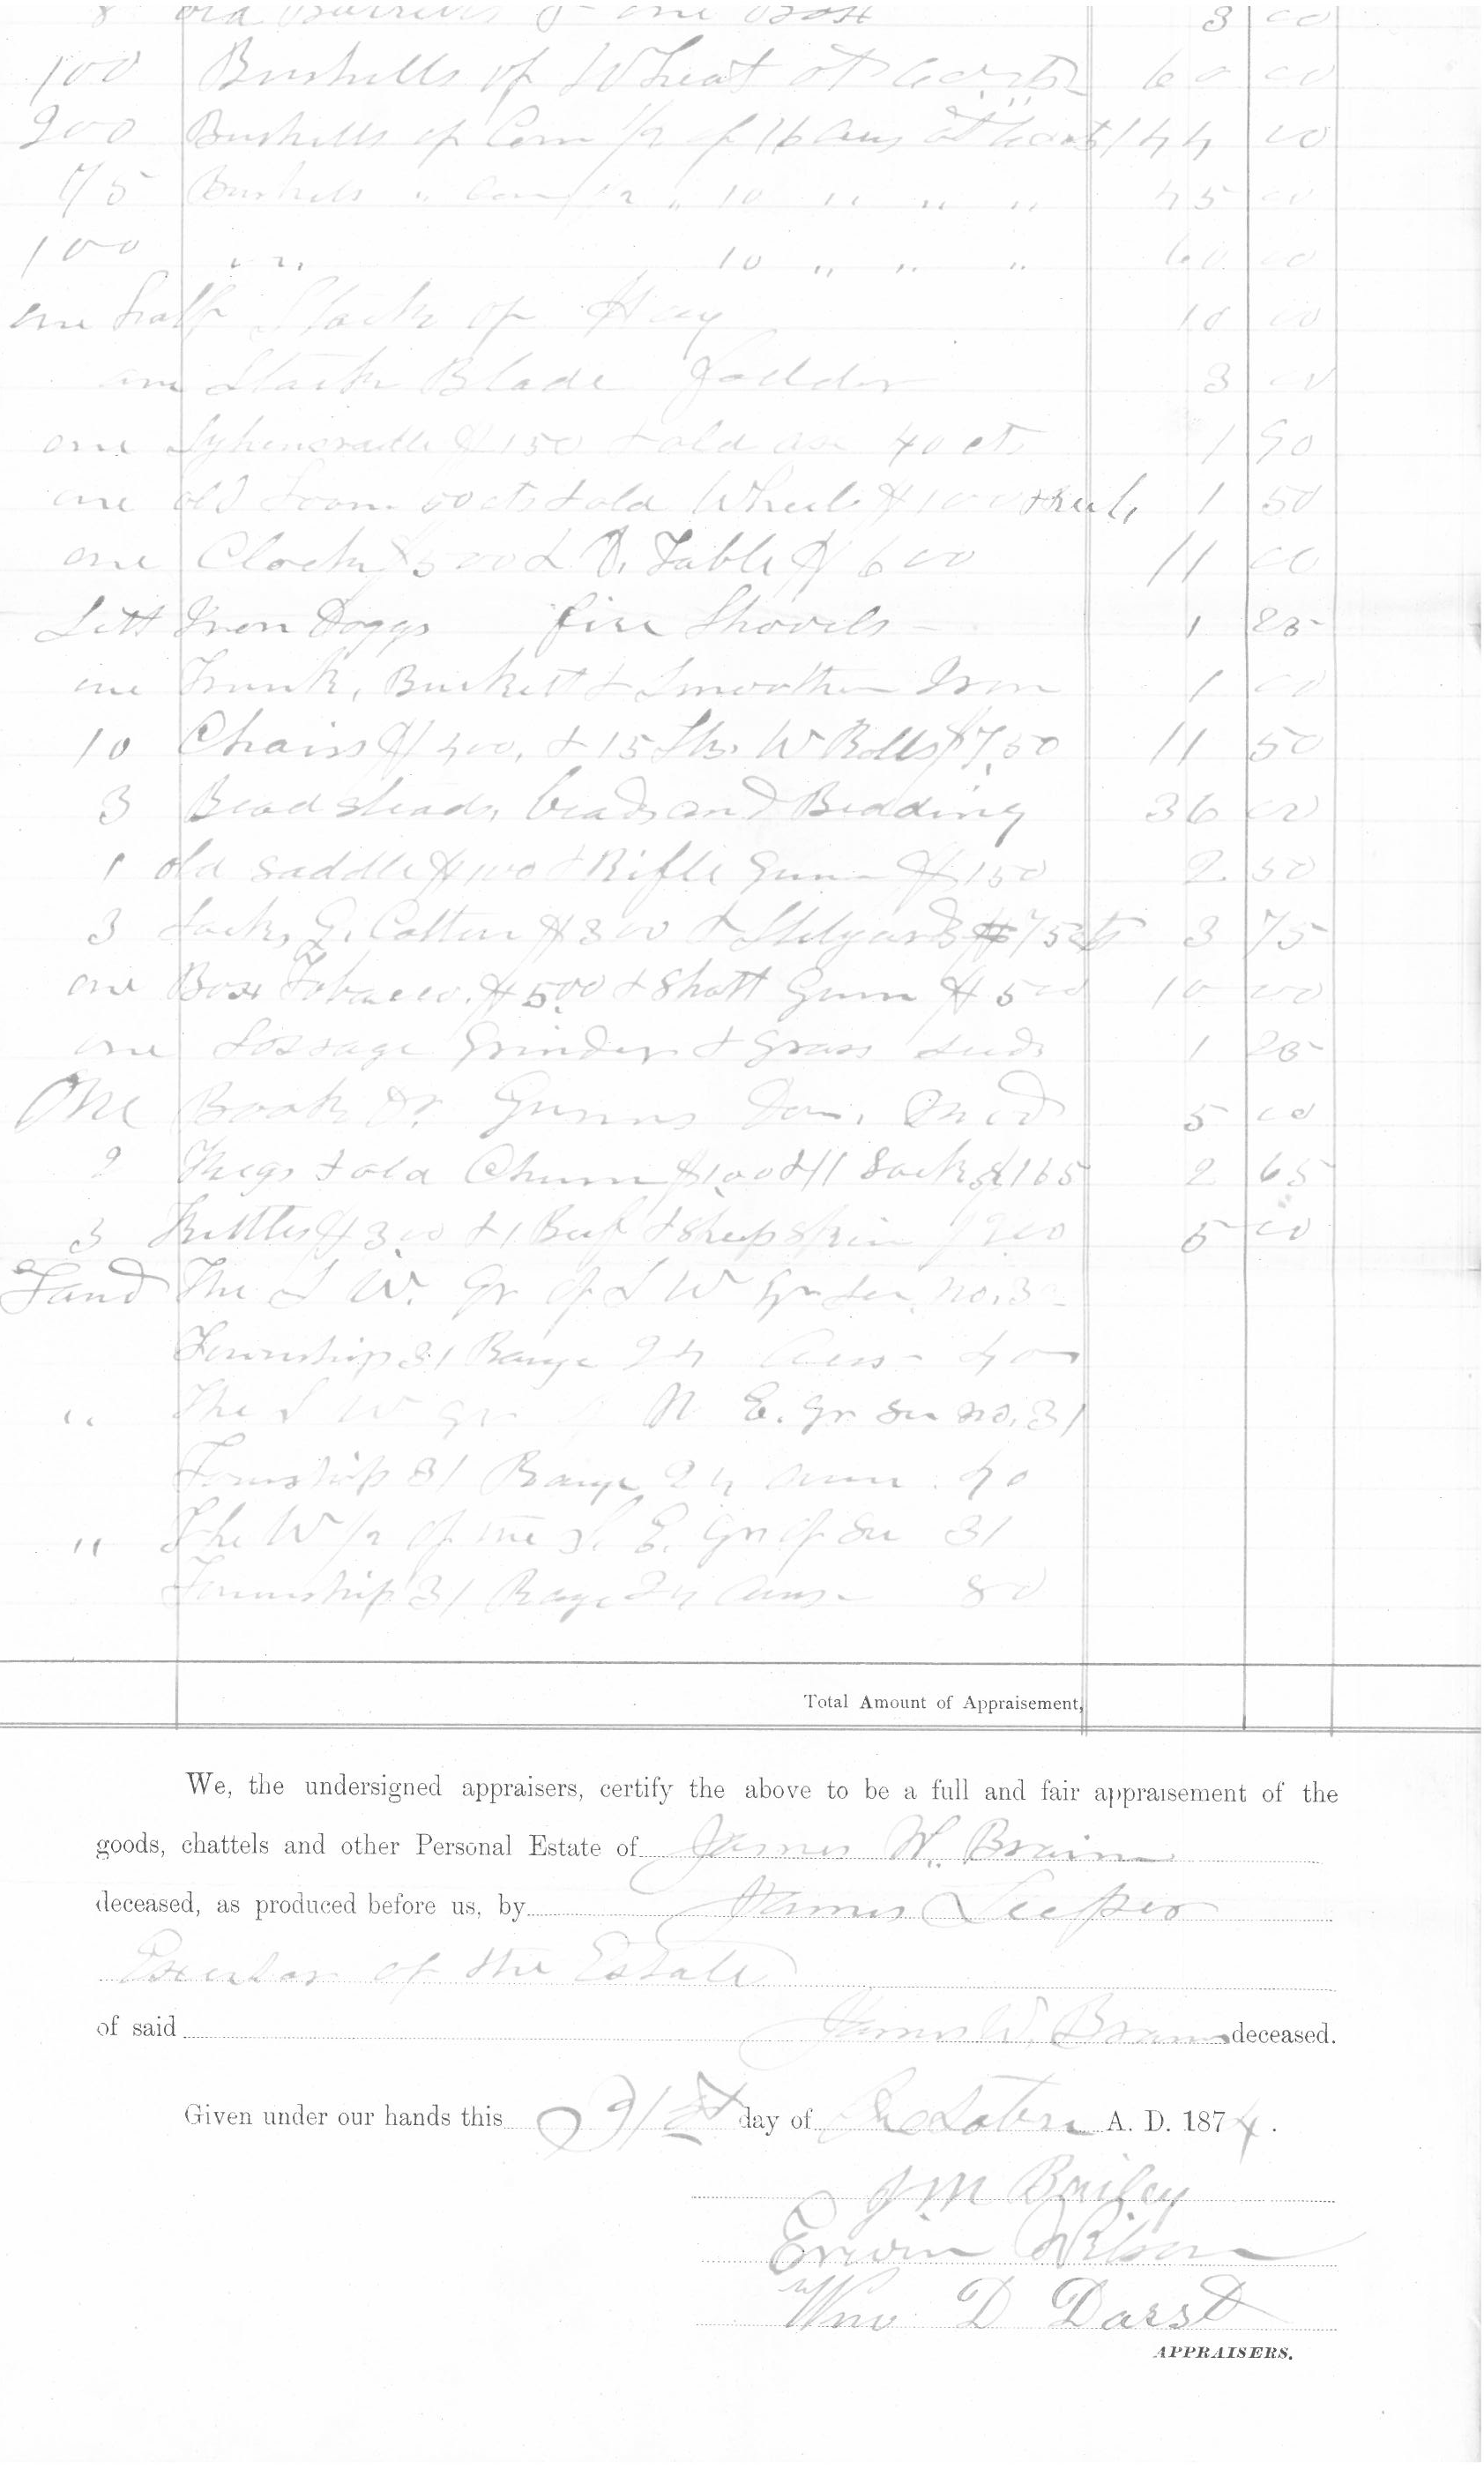 8 old Barrells & one Box 3 00
100 Bushells of Wheat at 60 cts 60 00
200 Bushells of Corn 1/2 of 16 at 144 00
75 Bushells " Corn 1/2 " 10 " " " 45 00
100 " " 10 " " " 60 00
one half Stack of Hay 10 00
one Stack Blade Fodder 3 00
one $150 & old 40 cts 1 90
one old Loom 50 cts & old Wheel $100 & reel, 1 50
one Clock $500 & D. Table $600 11 00
Lott Iron Doggs fire Shovels 1 25
one Trunk, Buckett & Smoothen Iron 1 00
10 Chairs $400, & 15 lbs. W Rolls $7.50 11 50
3 Beadsteads, beads and Beading 36 00
1 old saddle $100 & Rifle Gunn $150 2 50
3 Sacks G. Cotten $300 & Stilyards 75 cts 3 75
one Box Tobacco. $500 & Shott Gunn $500 10 00
one Sossage Grinder & Grass seeds 1 25
One Book Dr. Gunns Dom. Med 5 00
2 Kegs & old Churn $1.00 & 11 Sacks $165 2 65
3 Kettles $3.00 & 1 Beef & sheep skin $200 5 00
Land The S W. Qr of S W Qr Sec. no. 32
Township 31 Range 24 40
" The S W Qr N E. Qr Sec no. 31
Township 31 Range 24 40
" The W 1/2 of the S. E. Qr of Sec 31
Township 31 Rage 24 80
Total Amount of Appraisement,
We, the undersigned appraisers, certify the above to be a full and fair appraisement of the
goods, chattels and other Personal Estate of James W. Brain
deceased, as produced before us, by James Leeper
Executor of the Estate
of said James W. Brain deceased.
Given under our hands this 21st day of October A. D. 1874.
J M Bailey
Erwin Wilson
Wm D Darst
APPRAISERS.